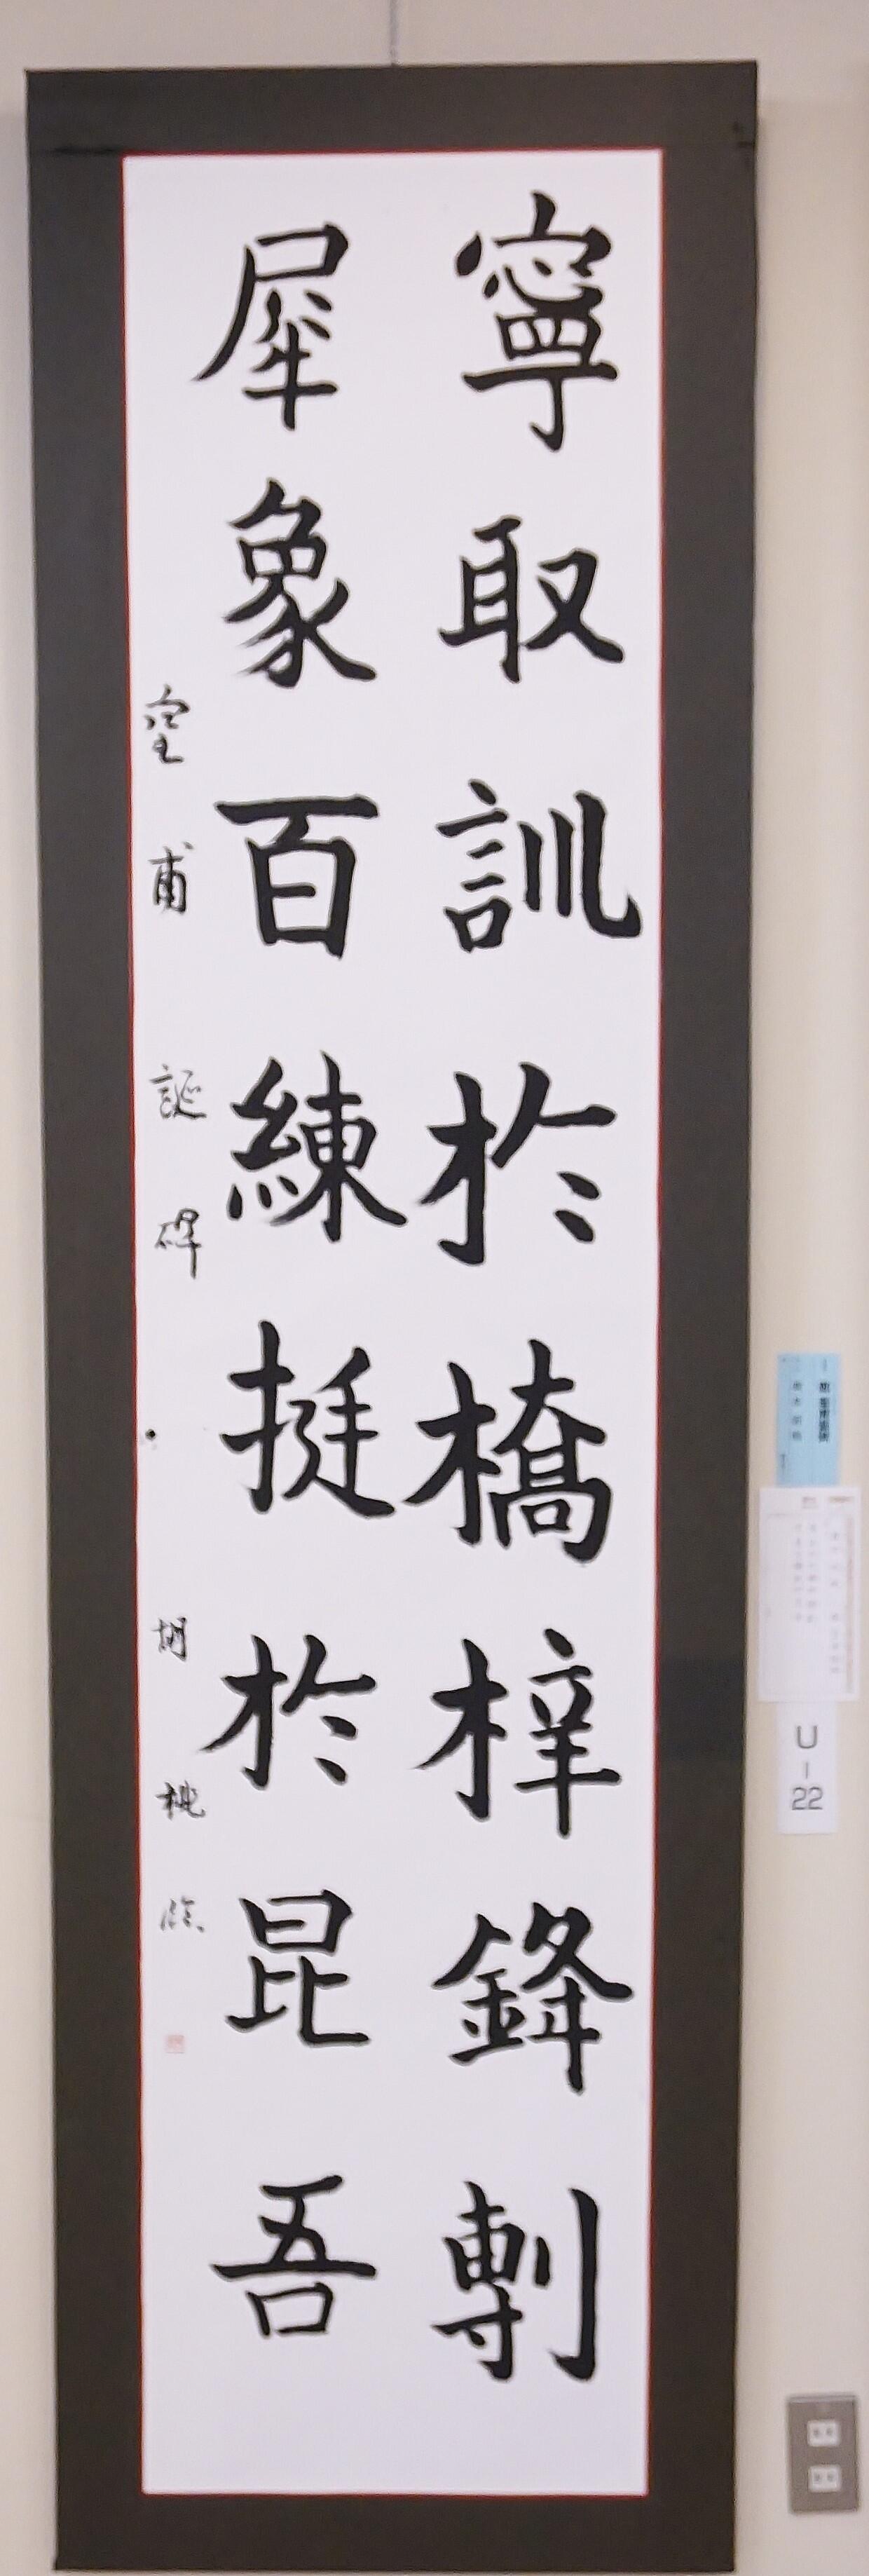 寧取訓於橋梓鋒剸
犀象百練挺於昆吾
皇甫誕碑 胡桃臨
U-22